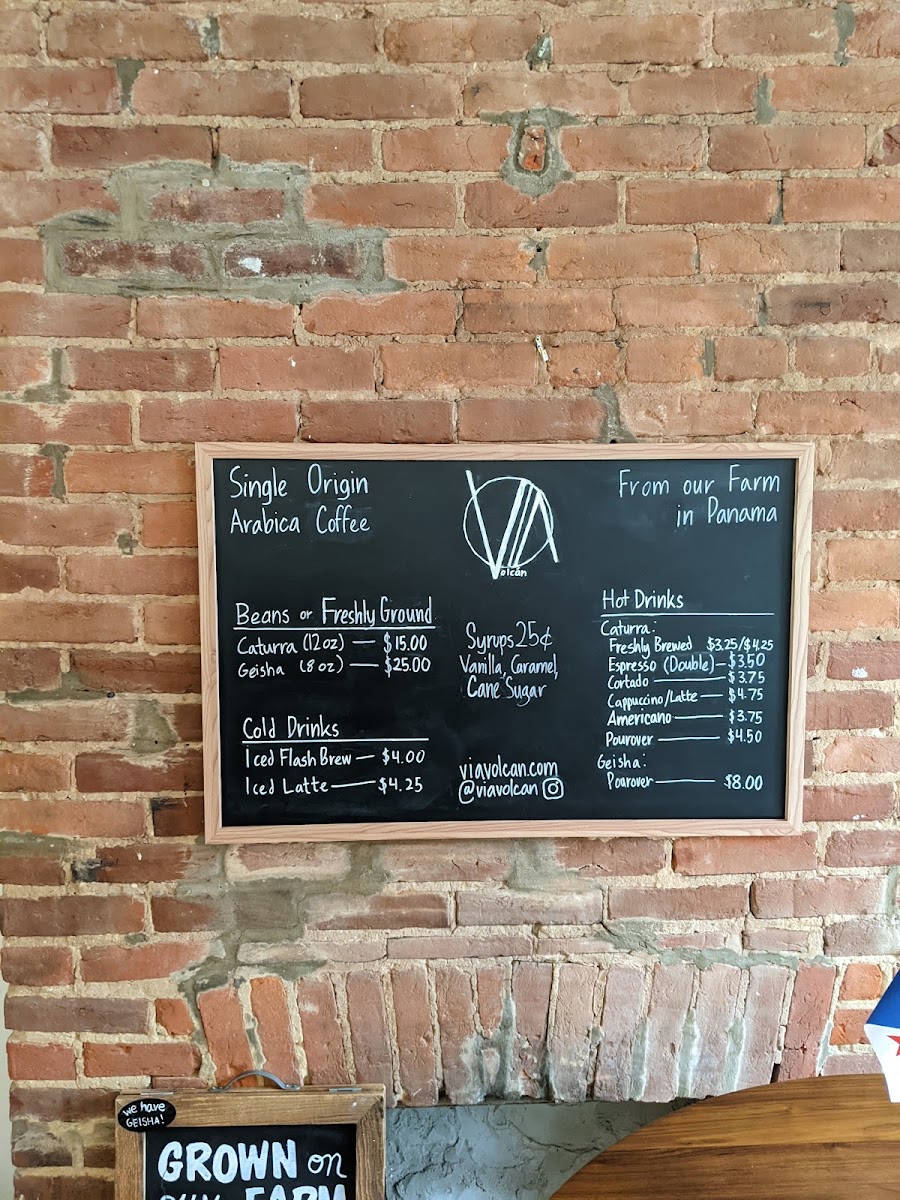 Single Origin
Arabica Coffee
VIA
Volcán
From our Farm
in Panama
Beans or Freshly Ground
Caturra (12oz) — $15.00
Geisha (8oz) — $25.00
Cold Drinks
Iced Flash Brew — $4.00
Iced Latte — $4.25
Syrups 25¢
Vanilla, Caramel,
Cane Sugar
viavolcan.com
@viavolcan
Hot Drinks
Caturra:
Freshly Brewed $3.25/$4.25
Espresso (Double) — $3.50
Cortado — $3.75
Cappuccino/Latte — $4.75
Americano — $3.75
Pourover — $4.50
Geisha:
Pourover — $8.00
we have
GEISHA!
GROWN on
our FARM